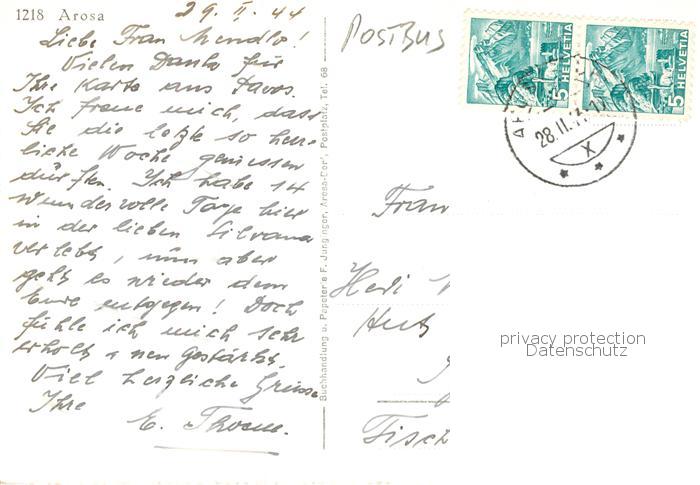 1218 Arosa
29. II. 44
Liebe Frau Mendlo!
Vielen Dank für
Ihre Karte aus Davos.
Ich freue mich, dass
Sie die letzte so herr-
liche Woche geniessen
dürften. Ich habe 14
wundervolle Tage hier
in der lieben Silvana
verlebt, nun aber
geht es wieder dem
Ende entgegen! Doch
fühle ich mich sehr
erholt & neu gestärkt.
Viel herzliche Grüsse
Ihre
E. Thoene.
Buchhandlung u. Papeterie F. Junginger, Arosa-Dorf, Postplatz, Tel. 68
POSTBUS
5 HELVETIA
5 HELVETIA
28.II.
X
Frau
Hedi
Hut
Fisch
privacy protection
Datenschutz